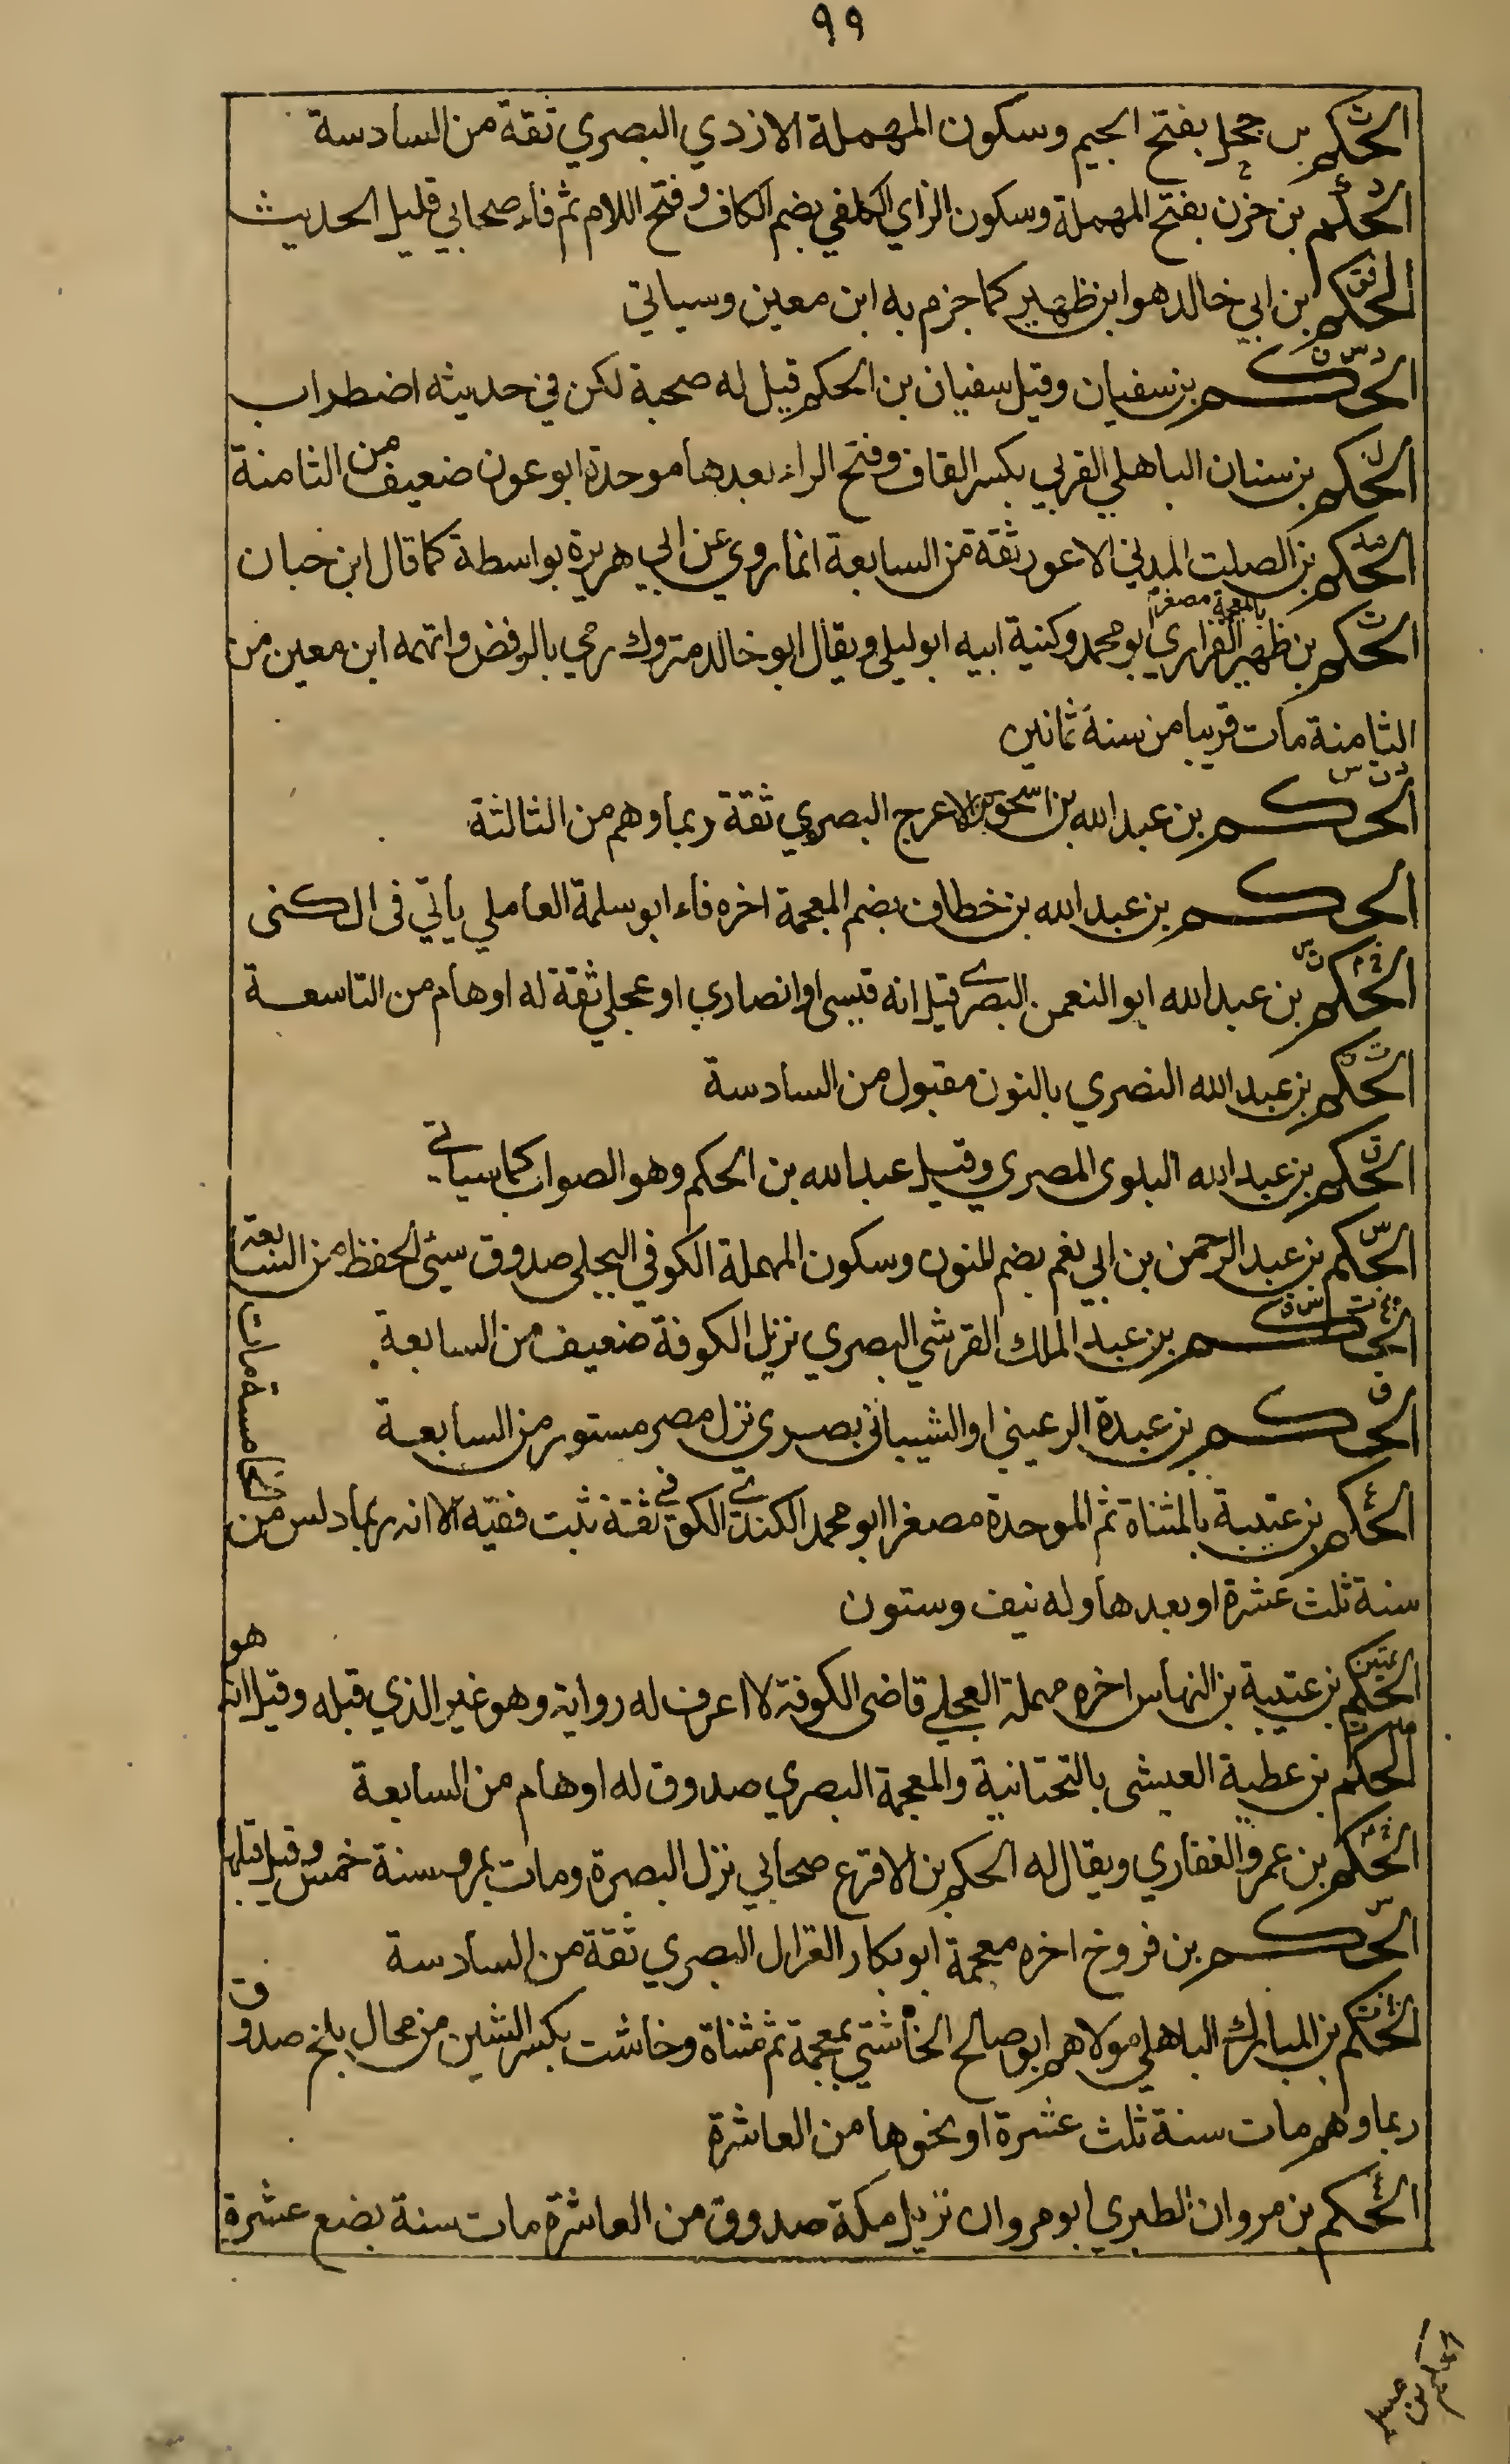 ٩٩
الحكم بن جحل بفتح الجيم وسكون المهملة الازدي البصري ثقة من السادسة
الحكم بن حزن بفتح المهملة وسكون الزاي الكلفي بضم الكاف وفتح اللام ثم فاء صحابي قليل الحديث
الحكم بن ابي خالد هو ابن ظهير كما جزم به ابن معين وسياتي
د س ق
الحكم بن سفيان وقيل سفيان بن الحكم قيل له صحبة لكن في حديثه اضطراب
الحكم بن سنان الباهلي القربي بكسر القاف وفتح الراء بعدها موحدة ابو عون ضعيف من الثامنة
الحكم بن الصلت المدني الاعور ثقة من السابعة انما روي عن ابي هريرة بواسطة كما قال ابن حبان
بالمعجمة مصغرا
الحكم بن ظهير الفزاري ابو محمد وكنية ابيه ابو ليلى ويقال ابو خالد متروك رمي بالرفض واتهمه ابن معين من
الثامنة مات قريبا من سنة ثمانين
د ت س
الحكم بن عبد الله بن اسحق بن الاعرج البصري ثقة ربما وهم من الثالثة
الحكم بن عبد الله بن خطاف بضم المعجمة اخره فاء ابو سلمة العاملي يأتي فى الكنى
خ م ت س
الحكم بن عبد الله ابو النعمن البصري قيل انه قيسي او انصاري او عجلي ثقة له اوهام من التاسعة
ت ق
الحكم بن عبد الله النصري بالنون مقبول من السادسة
ق
الحكم بن عبد الله البلوى المصري وقيل عبد الله بن الحكم وهو الصواب كما سياتي
س
الحكم بن عبد الرحمن بن ابي نعم بضم النون وسكون المهملة الكوفي البجلي صدوق سيئ الحفظ من السابعة
الحكم بن عبد الملك القرشي البصري نزيل الكوفة ضعيف من السابعة
ق
الحكم بن عبدة الرعيني او الشيباني بصري نزل مصر مستور من السابعة
ع
الحكم بن عتيبة بالمثناة ثم الموحدة مصغرا ابو محمد الكندي الكوفي ثقة ثبت فقيه الا انه ربما دلس من
الخامسة مات
سنة ثلث عشرة او بعدها وله نيف وستون
الحكم بن عتيبة بن النهاس اخره مهملة العجلي قاضى الكوفة لا اعرف له رواية وهو غير الذي قبله وقيل انه هو
الحكم بن عطية العيشى بالتحتانية والمعجمة البصري صدوق له اوهام من السابعة
الحكم بن عمرو الغفاري ويقال له الحكم بن الاقرع صحابي نزل البصرة ومات بمرو سنة خمس وقيل قبلها
س
الحكم بن فروخ اخره معجمة ابو بكار الغزال البصري ثقة من السادسة
الحكم بن المبارك الباهلي مولاهم ابو صالح الخاشتي بمعجمة ثم مثناة وخاشت بكسر الشين من محال بلخ صدوق
ربما وهم مات سنة ثلث عشرة او نحوها من العاشرة
الحكم بن مروان الطبري ابو مروان نزيل مكة صدوق من العاشرة مات سنة بضع عشرة